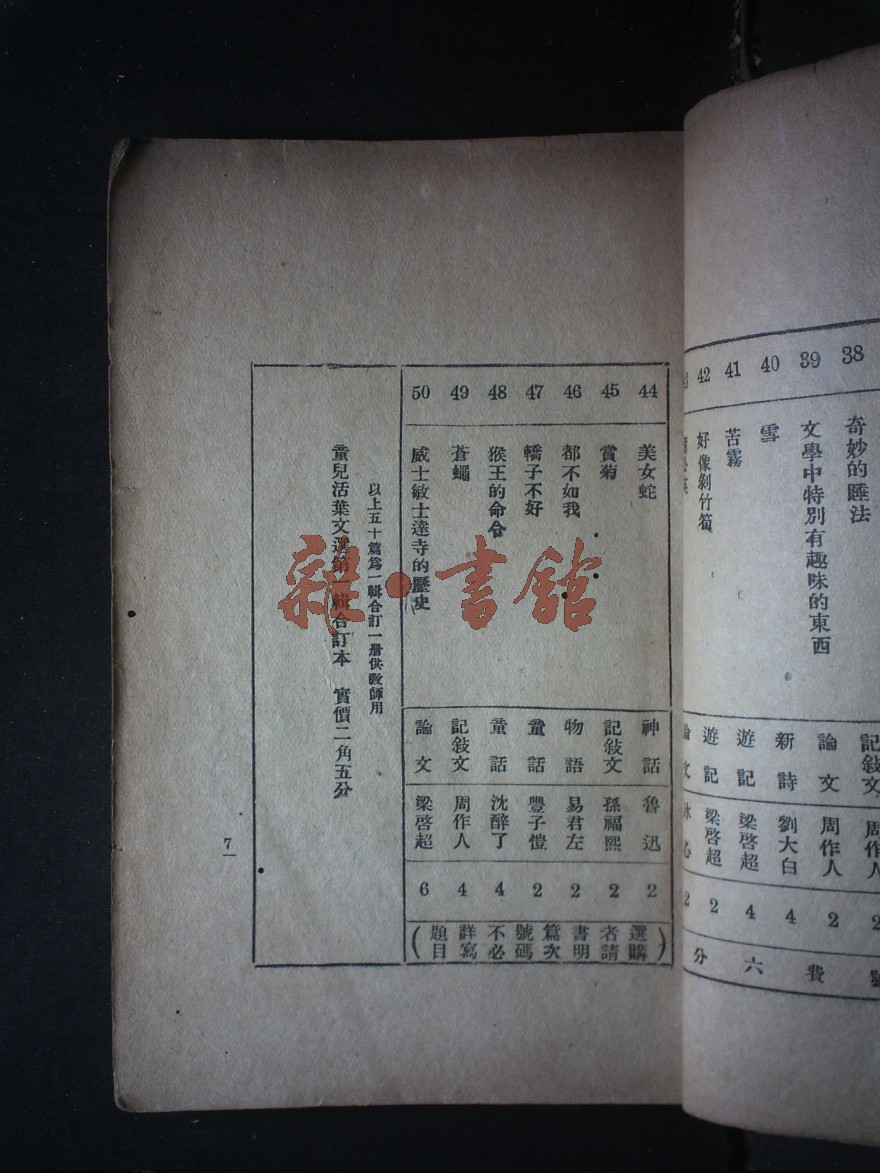 38 奇妙的睡法 記敍文 周作人 2
39 文學中特別有趣味的東西 論文 周作人 2
40 雪 新詩 劉大白 4
41 苦霧 遊記 梁啓超 4
42 好像剝竹筍 遊記 梁啓超 2
論文 冰心 2
費六分
44 美女蛇 神話 魯迅 2
45 賞菊 記敍文 孫福熙 2
46 都不如我 物語 易君左 2
47 轎子不好 童話 豐子愷 2
48 猴王的命令 童話 沈醉了 4
49 蒼蠅 記敍文 周作人 4
50 威士敏士達寺的歷史 論文 梁啓超 6
(選購者請書明篇次號碼不必詳寫題目)
以上五十篇爲一輯合訂一册供敎師用
童兒活葉文選第一輯合訂本 實價二角五分
7
雜·書館